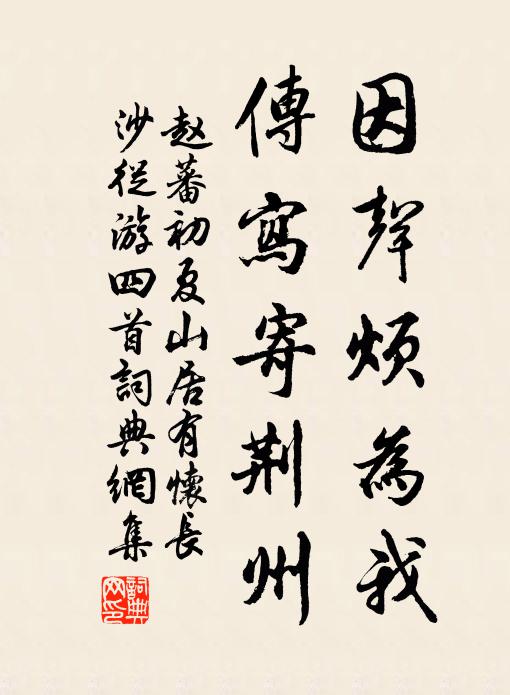 因聲煩為我
傳寫寄荆州
赵蕃初夏山居有懷長
沙從游四首詞典網集
詞典
网印